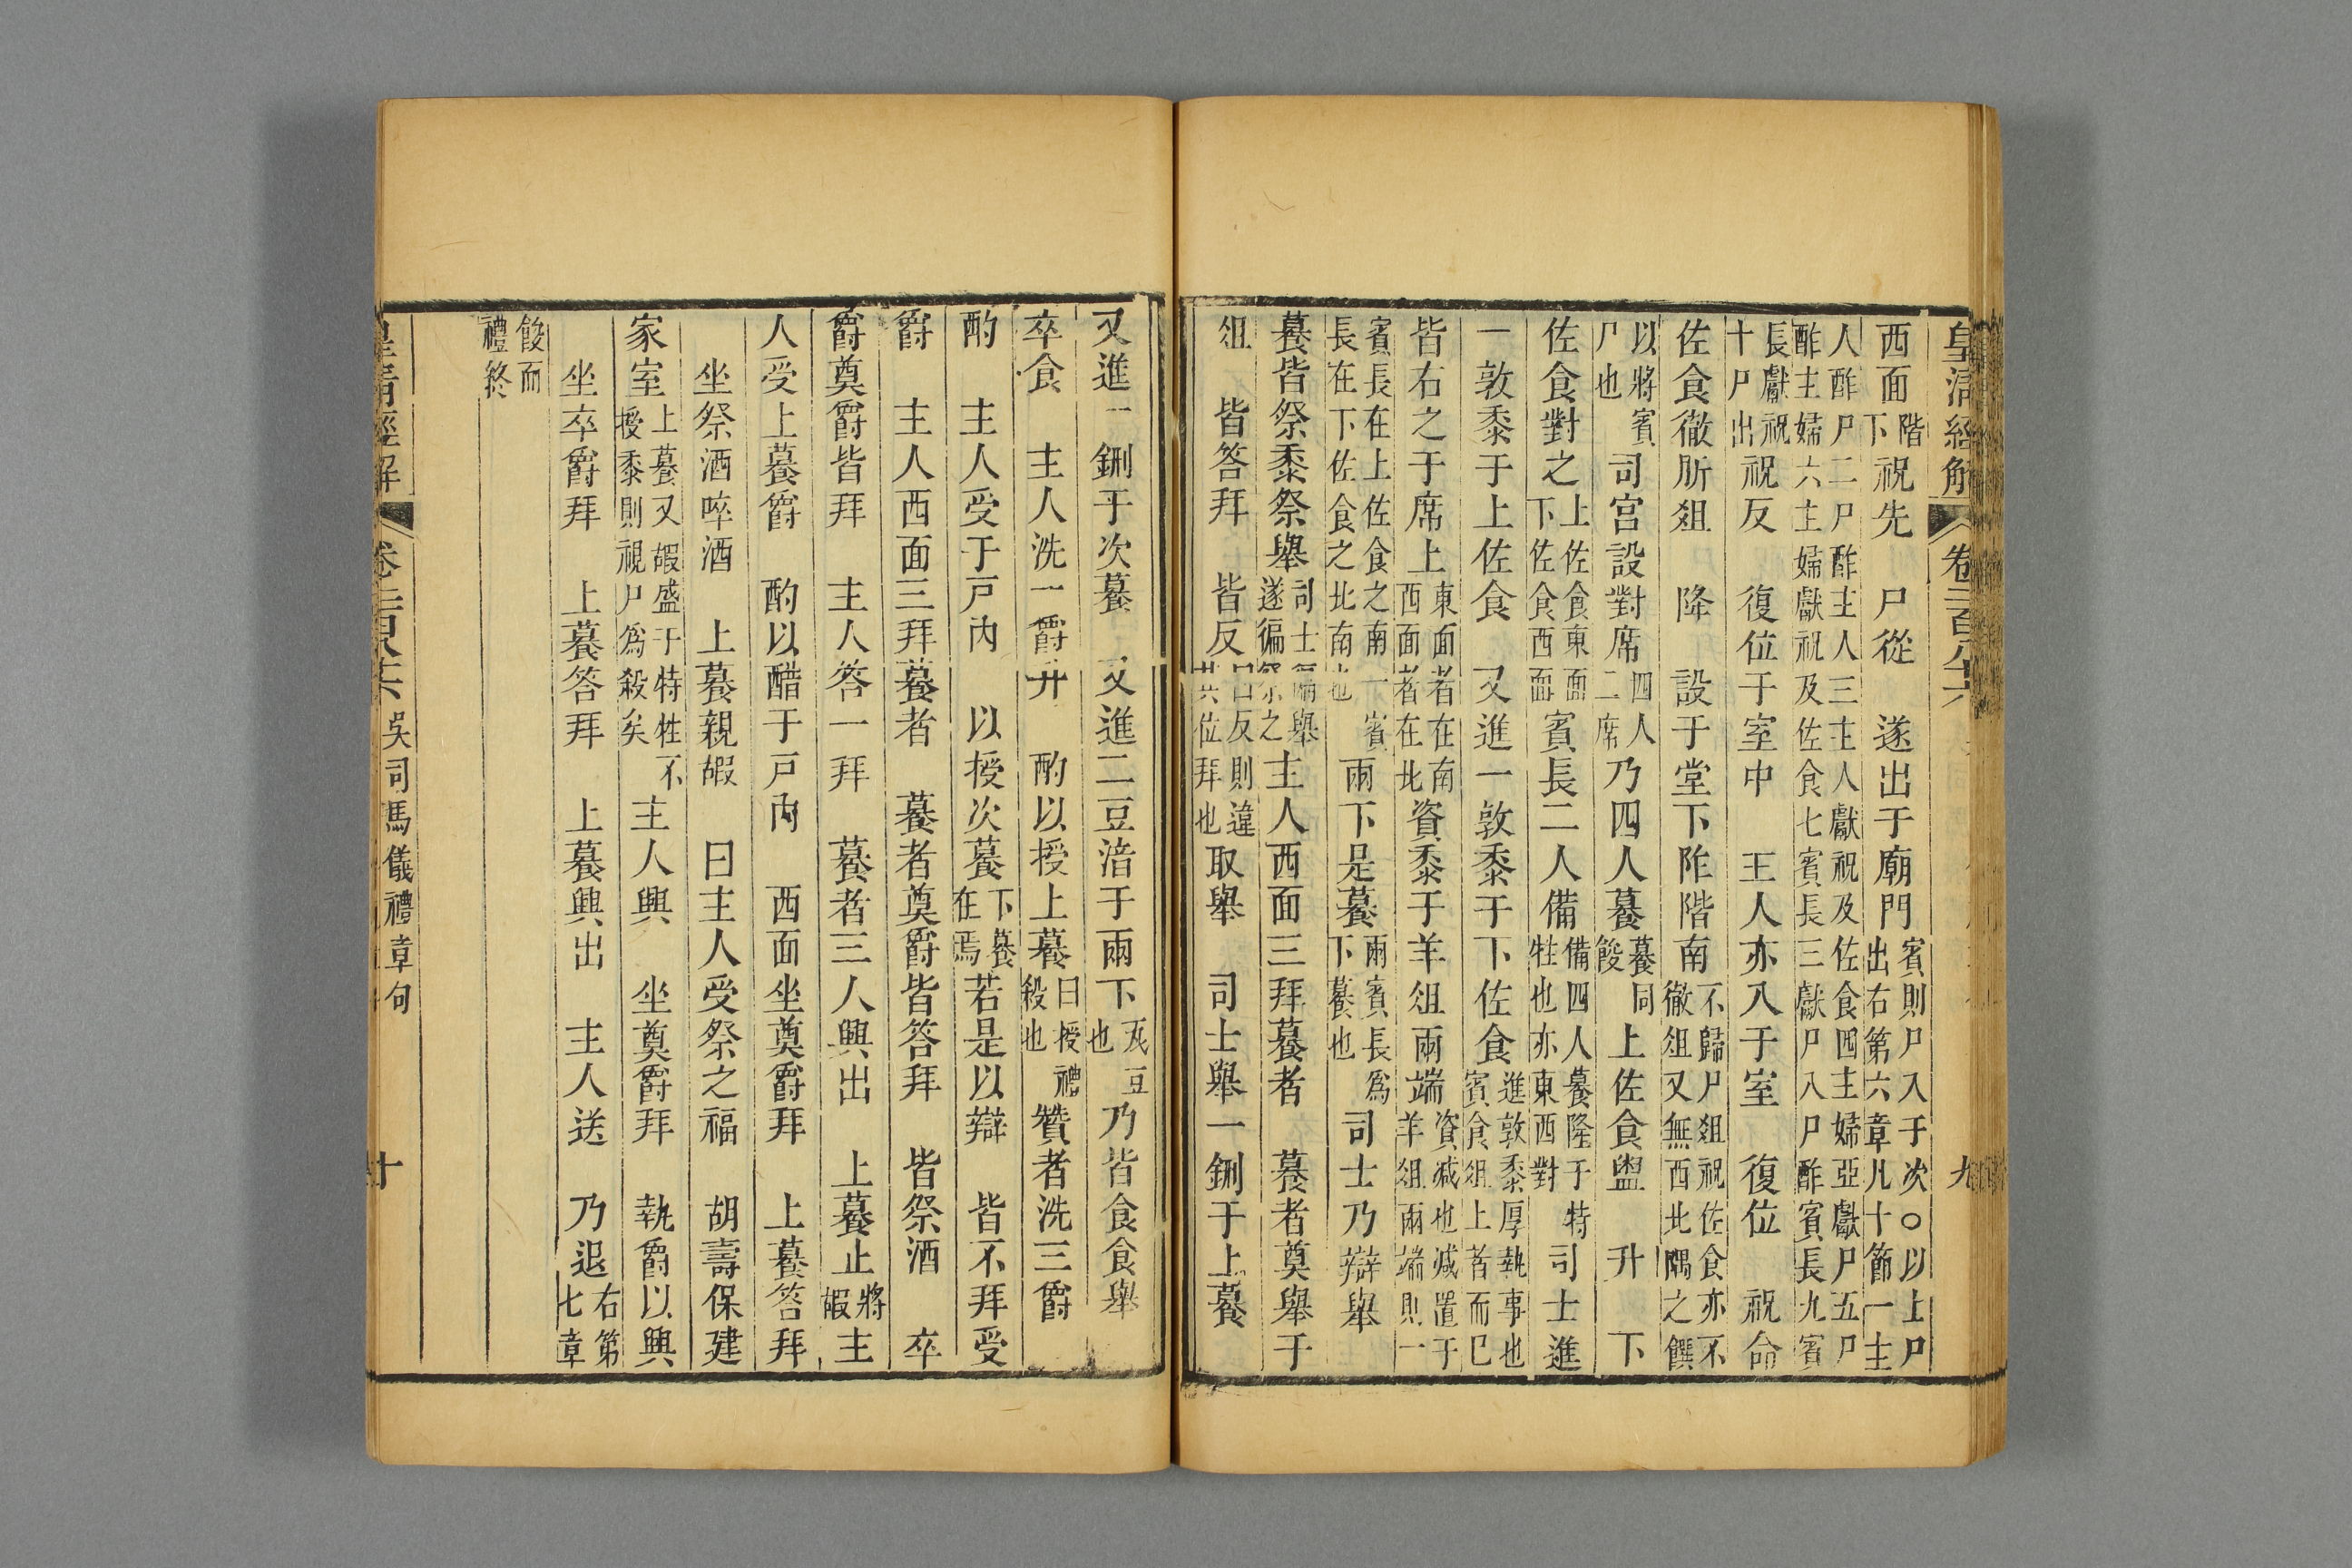 皇清經解 卷二百八十六 九
西面階下祝先 尸從 遂出于廟門賓則尸入于次○以上尸出右第六章凡十節一主
人酢尸二尸酢主人三主人獻祝及佐食四主婦亞獻尸五尸酢主婦六主婦獻祝及佐食七賓長三獻尸八尸酢賓長九賓
長獻祝十尸出祝反 復位于室中 主人亦入于室 復位 祝命
佐食徹肵俎 降 設于堂下阼階南不歸尸俎祝佐食亦不徹俎又無西北隅之饌
以將賓尸也司宮設對席四人二席乃四人䬸䬸同餕上佐食盥 升 下
佐食對之上佐食東面下佐食西面賓長二人備備四人䬸隆于特牲也亦東西對司士進
一敦黍于上佐食 又進一敦黍于下佐食進敦黍厚執事也賓食俎上者而已
皆右之于席上東面者在南西面者在北資黍于羊俎兩端資減也減置于羊俎兩端則一
賓長在上佐食之南一賓長在下佐食之北南也兩下是䬸兩賓長爲下䬸也司士乃辯舉
䬸皆祭黍祭舉司士徧舉遂徧祭之主人西面三拜䬸者 䬸者奠舉于
俎 皆答拜 皆反曰反則違其位拜也取舉 司士舉一鉶于上䬸
又進一鉶于次䬸 又進二豆湆于兩下瓦豆也乃皆食食舉
卒食 主人洗一爵升 酌以授上䬸曰授禮殺也贊者洗三爵
酌 主人受于戸内 以授次䬸下䬸在焉若是以辯 皆不拜受
爵 主人西面三拜䬸者 䬸者奠爵皆答拜 皆祭酒 卒
爵奠爵皆拜 主人答一拜 䬸者三人興出 上䬸止將嘏主
人受上䬸爵 酌以醋于戸内 西面坐奠爵拜 上䬸答拜
坐祭酒啐酒 上䬸親嘏 曰主人受祭之福 胡壽保建
家室上䬸又嘏盛于特牲不授黍則視尸爲殺矣主人興 坐奠爵拜 執爵以興
坐卒爵拜 上䬸答拜 上䬸興出 主人送 乃退右第七章
餕而禮終
皇清經解 卷二百八十六 吳司馬儀禮章句 十